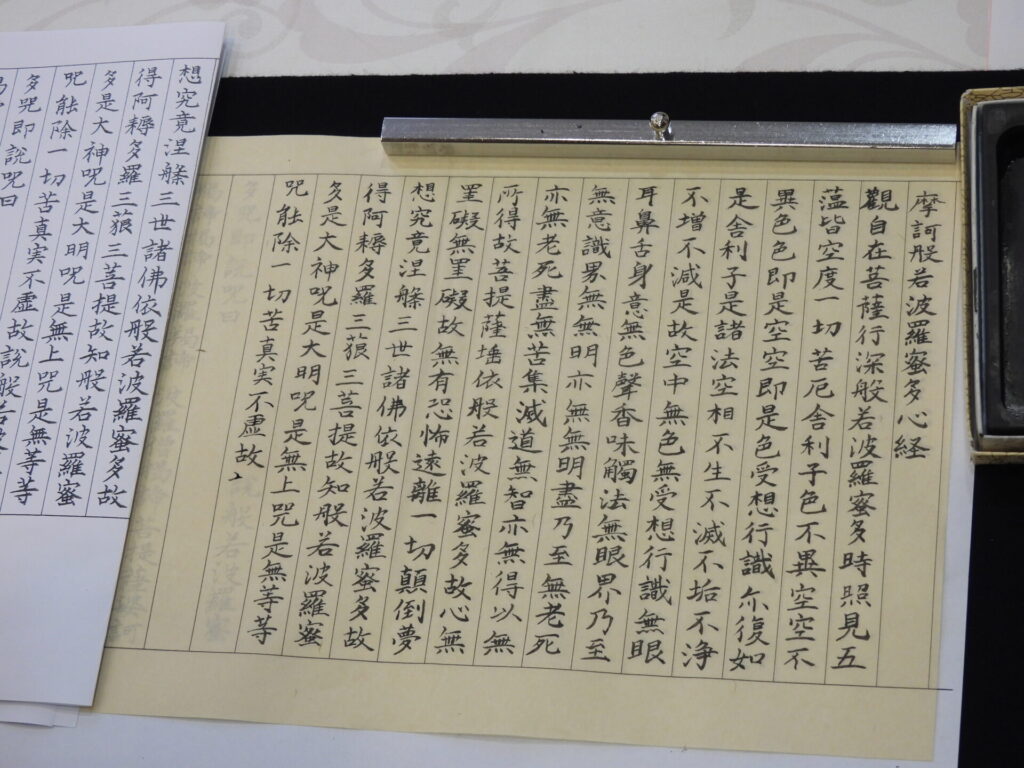 摩訶般若波羅蜜多心経
觀自在菩薩行深般若波羅蜜多時照見五
薀皆空度一切苦厄舍利子色不異空空不
異色色即是空空即是色受想行識亦復如
是舍利子是諸法空相不生不滅不垢不浄
不增不減是故空中無色無受想行識無眼
耳鼻舌身意無色聲香味觸法無眼界乃至
無意識界無無明亦無無明盡乃至無老死
亦無老死盡無苦集滅道無智亦無得以無
所得故菩提薩埵依般若波羅蜜多故心無
罣礙無罣礙故無有恐怖遠離一切顛倒夢
想究竟涅槃三世諸佛依般若波羅蜜多故
得阿耨多羅三藐三菩提故知般若波羅蜜
多是大神呪是大明呪是無上呪是無等等
呪能除一切苦真実不虚故
想究竟涅槃三世諸佛依般若波羅蜜多故
得阿耨多羅三藐三菩提故知般若波羅蜜
多是大神呪是大明呪是無上呪是無等等
呪能除一切苦真実不虚故説般若波
多呪即説呪曰